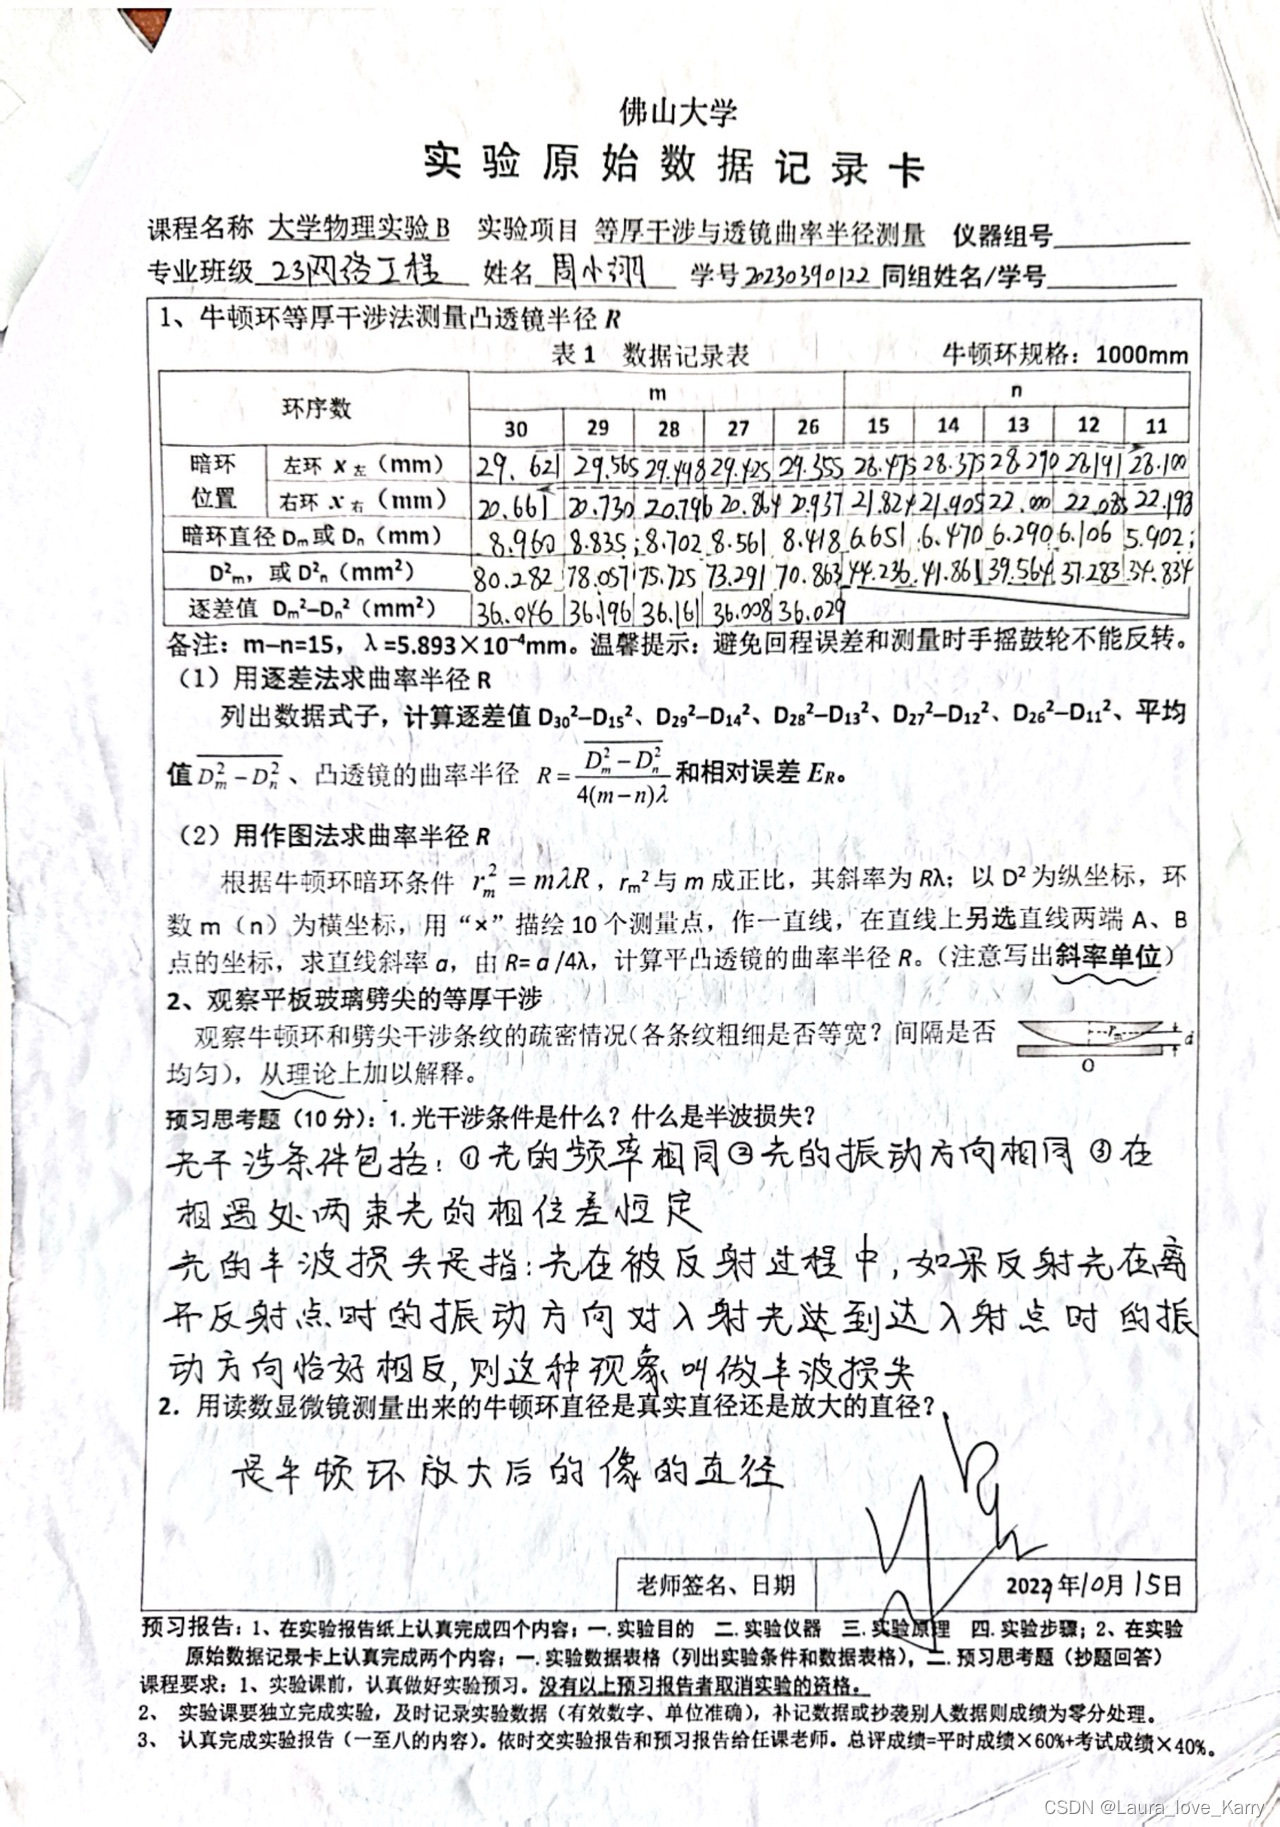 佛山大学
实验原始数据记录卡
课程名称 大学物理实验B 实验项目 等厚干涉与透镜曲率半径测量 仪器组号
专业班级 23网络工程 姓名 周小翊 学号 20230390122 同组姓名/学号
1、牛顿环等厚干涉法测量凸透镜半径 R
表1 数据记录表 牛顿环规格：1000mm
环序数 m n
30 29 28 27 26 15 14 13 12 11
暗环位置 左环 x左（mm） 29.621 29.565 29.498 29.425 29.355 28.475 28.375 28.290 28.191 28.100
右环 x右（mm） 20.661 20.730 20.796 20.864 20.937 21.824 21.905 22.000 22.085 22.198
暗环直径 Dm或 Dn（mm） 8.960 8.835 8.702 8.561 8.418 6.651 6.470 6.290 6.106 5.902
D²m，或 D²n（mm²） 80.282 78.057 75.725 73.291 70.863 44.236 41.861 39.564 37.283 34.834
逐差值 Dm²–Dn²（mm²） 36.046 36.196 36.161 36.008 36.029
备注：m–n=15，λ=5.893×10⁻⁴mm。温馨提示：避免回程误差和测量时手摇鼓轮不能反转。
（1）用逐差法求曲率半径 R
列出数据式子，计算逐差值 D30²–D15²、D29²–D14²、D28²–D13²、D27²–D12²、D26²–D11²、平均
值 Dm²−Dn²、凸透镜的曲率半径 R=Dm²−Dn²/4(m−n)λ 和相对误差 ER。
（2）用作图法求曲率半径 R
根据牛顿环暗环条件 rm²=mλR，rm²与 m 成正比，其斜率为 Rλ；以 D²为纵坐标，环
数 m（n）为横坐标，用“×”描绘 10 个测量点，作一直线，在直线上另选直线两端 A、B
点的坐标，求直线斜率 a，由 R= a /4λ，计算平凸透镜的曲率半径 R。（注意写出斜率单位）
2、观察平板玻璃劈尖的等厚干涉
观察牛顿环和劈尖干涉条纹的疏密情况（各条纹粗细是否等宽？间隔是否
均匀），从理论上加以解释。
rm d
O
预习思考题（10 分）：1. 光干涉条件是什么？什么是半波损失？
光干涉条件包括：①光的频率相同②光的振动方向相同 ③在
相遇处两束光的相位差恒定
光的半波损失是指：光在被反射过程中，如果反射光在离
开反射点时的振动方向对入射光达到达入射点时的振
动方向恰好相反，则这种现象叫做半波损失
2. 用读数显微镜测量出来的牛顿环直径是真实直径还是放大的直径？
是牛顿环放大后的像的直径
老师签名、日期 2022年10月15日
预习报告：1、在实验报告纸上认真完成四个内容；一. 实验目的 二. 实验仪器 三. 实验原理 四. 实验步骤；2、在实验
原始数据记录卡上认真完成两个内容；一. 实验数据表格（列出实验条件和数据表格），二. 预习思考题（抄题回答）
课程要求：1、实验课前，认真做好实验预习。没有以上预习报告者取消实验的资格。
2、 实验课要独立完成实验，及时记录实验数据（有效数字、单位准确），补记数据或抄袭别人数据则成绩为零分处理。
3、 认真完成实验报告（一至八的内容）。依时交实验报告和预习报告给任课老师。总评成绩=平时成绩×60%+考试成绩×40%。
CSDN @Laura_love_Karry